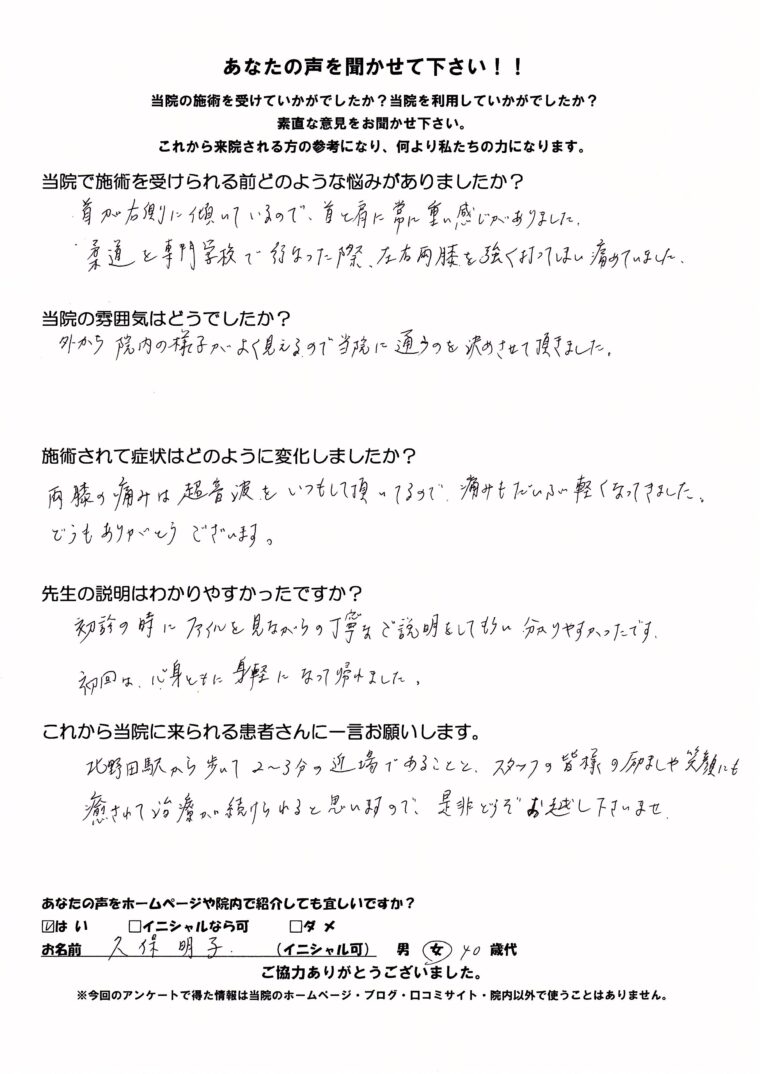 あなたの声を聞かせて下さい！！
当院の施術を受けていかがでしたか？当院を利用していかがでしたか？
素直な意見をお聞かせ下さい。
これから来院される方の参考になり、何より私たちの力になります。
当院で施術を受けられる前どのような悩みがありましたか？
首が右側に傾いているので、首と肩に常に重い感じがありました。
・柔道を専門学校で行なった際、左右両膝を強く打ってしまい痛めていました。
当院の雰囲気はどうでしたか？
外から院内の様子がよく見えるので当院に通うのを決めさせて頂きました。
施術されて症状はどのように変化しましたか？
両膝の痛みは超音波をいつもして頂いてるので、痛みもだいぶ軽くなってきました。
どうもありがとうございます。
先生の説明はわかりやすかったですか？
初診の時にファイルを見ながらの丁寧なご説明をしてもらい分りやすかったです。
初回は、心身ともに身軽になって帰れました。
これから当院に来られる患者さんに一言お願いします。
北野田駅から歩いて2〜3分の近場であることと、スタッフの皆様の励ましや笑顔にも
癒されて治療が続けられると思いますので、是非どうぞお越し下さいませ。
あなたの声をホームページや院内で紹介しても宜しいですか？
☑はい □イニシャルなら可 □ダメ
お名前 久保明子. （イニシャル可） 男 女 40 歳代
ご協力ありがとうございました。
※今回のアンケートで得た情報は当院のホームページ・ブログ・口コミサイト・院内以外で使うことはありません。